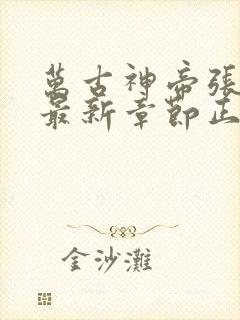 萬古神帝張
最新章節正
金沙灘